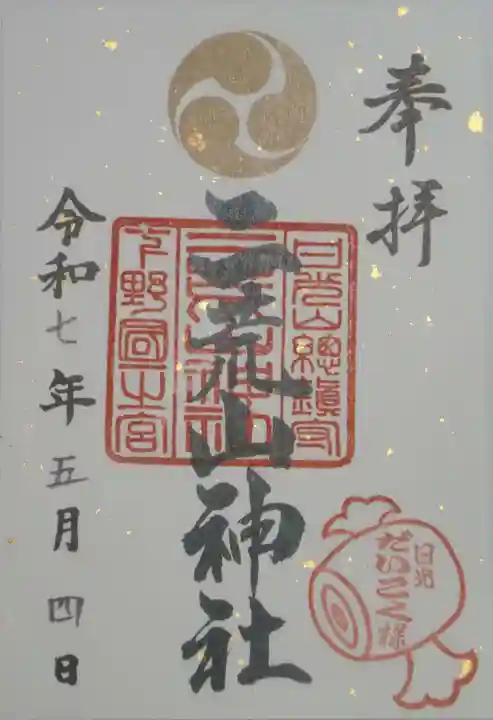 奉拝
二荒山神社
日光山總鎮守
二荒山神社
下野國一之宮
令和七年五月四日
日光
だいこく様